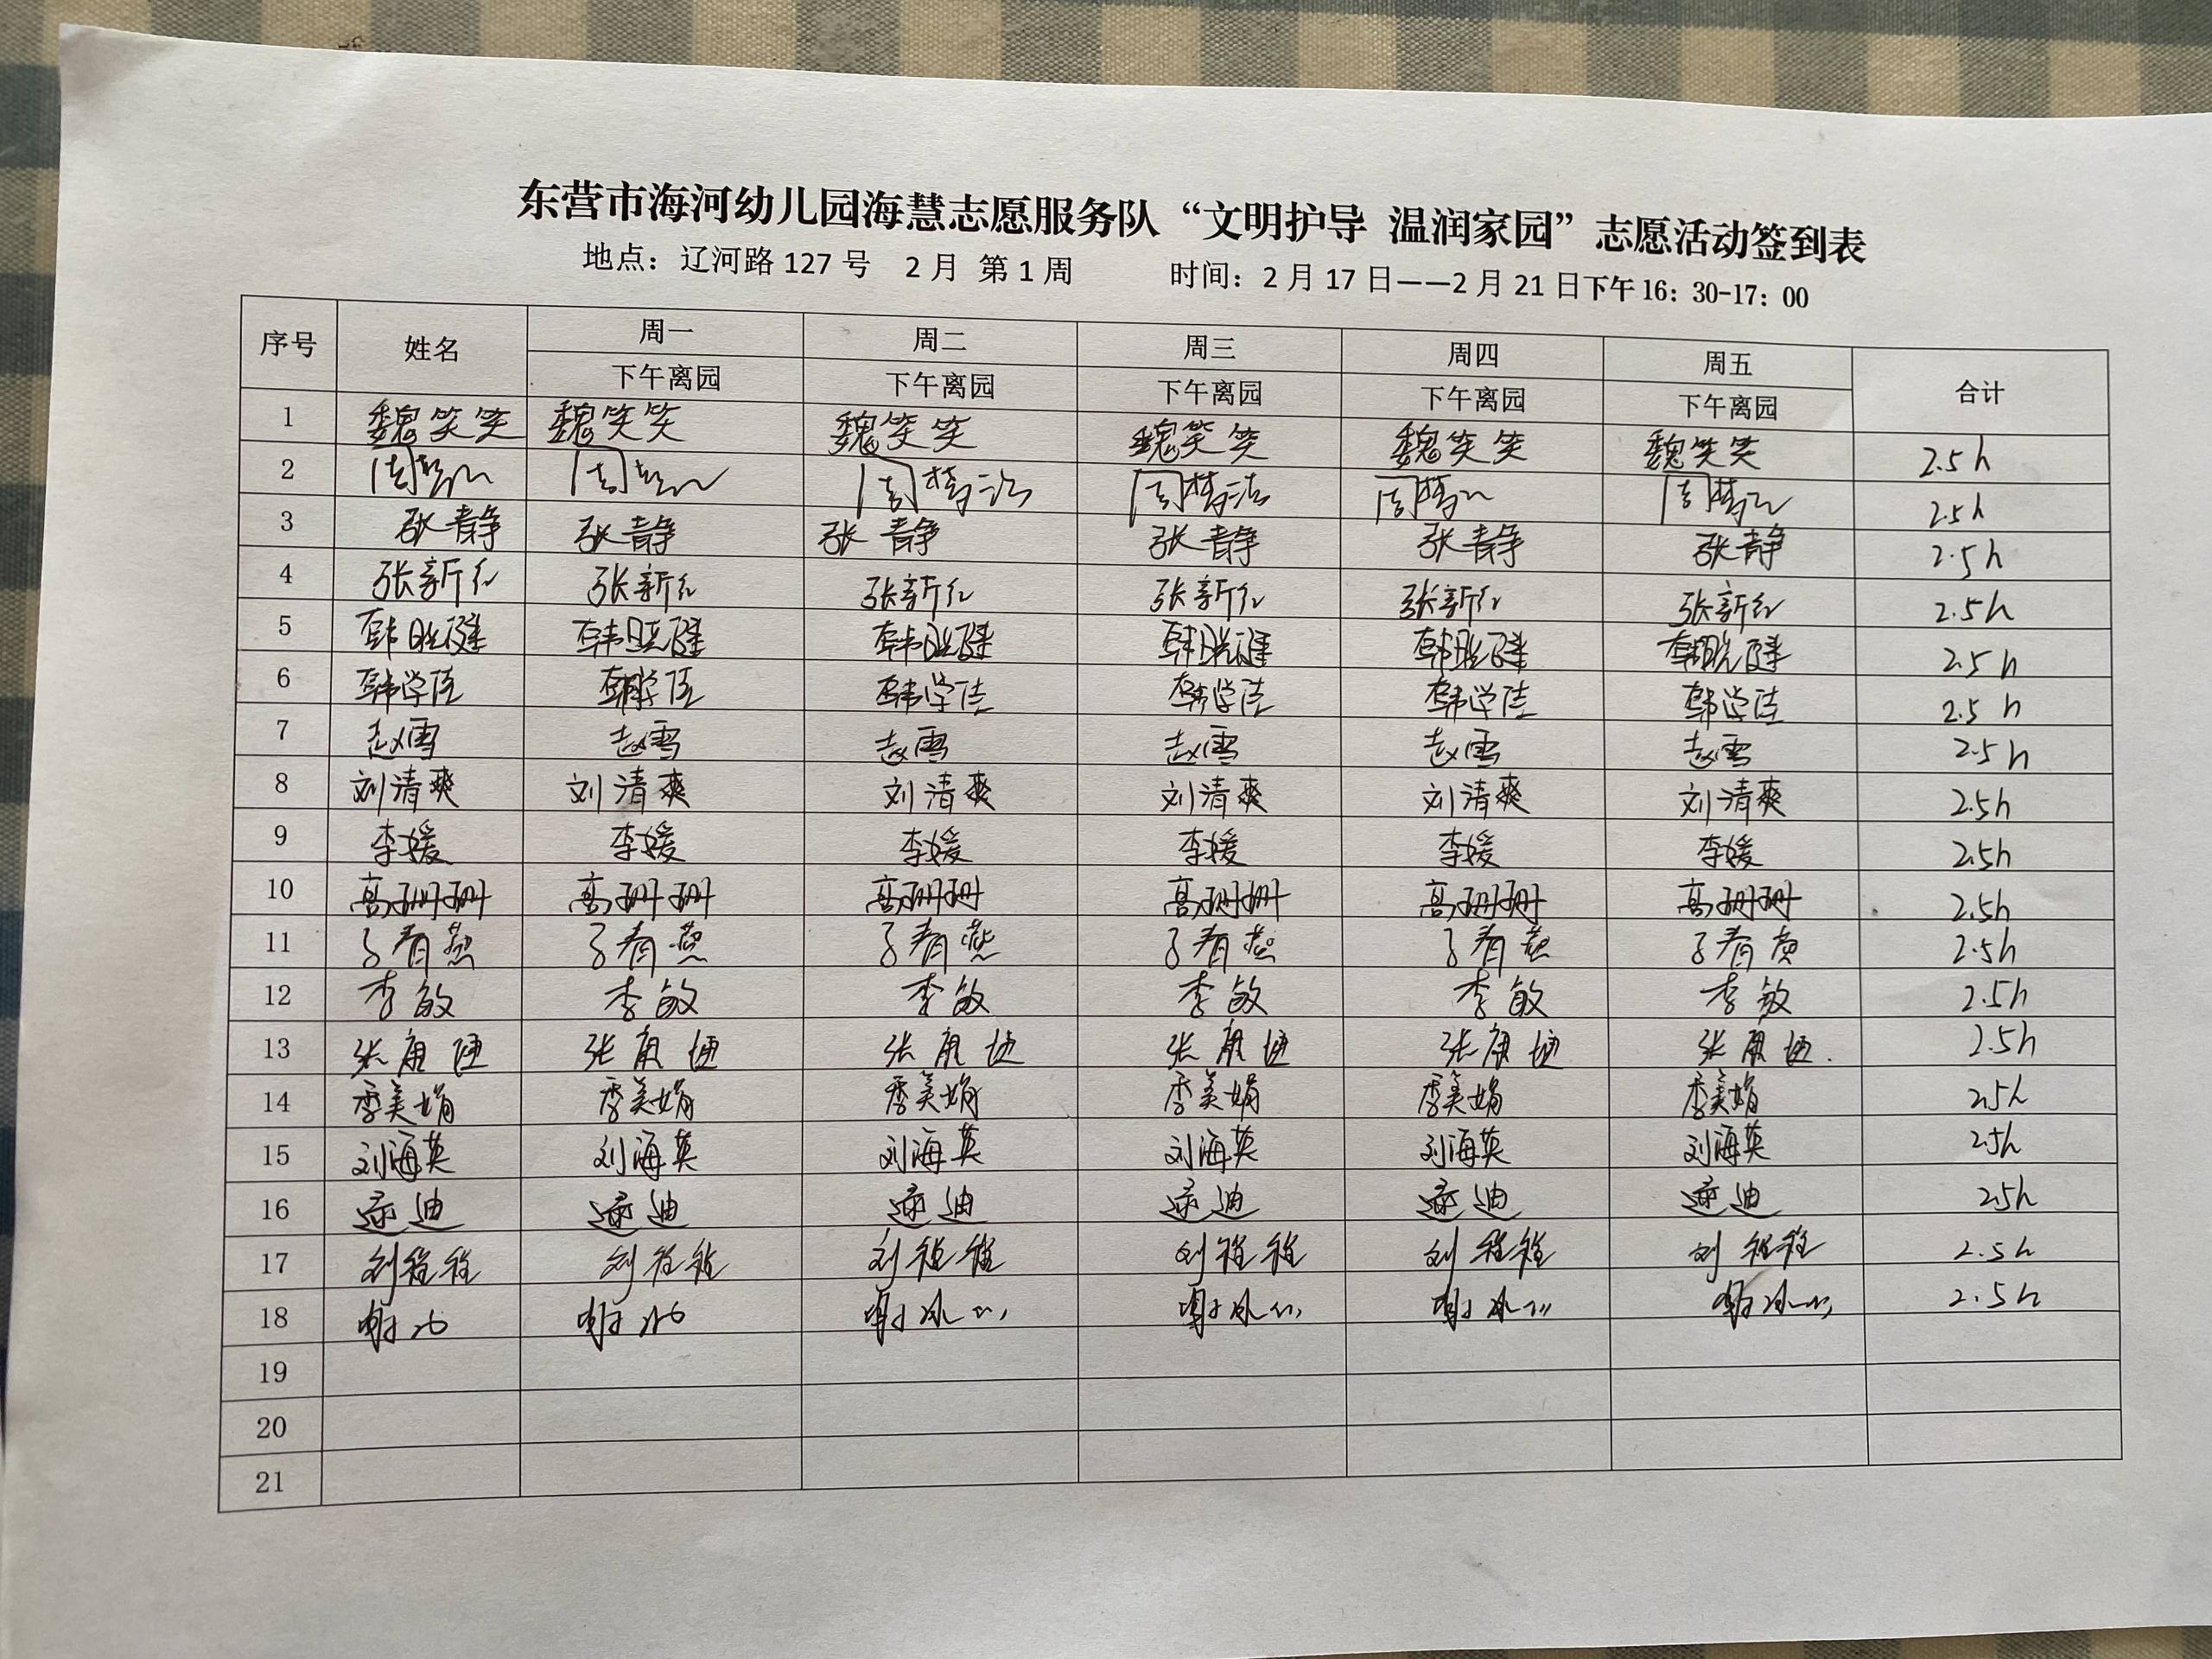 东营市海河幼儿园海慧志愿服务队“文明护导 温润家园”志愿活动签到表
地点：辽河路 127 号 2 月 第 1 周 时间：2 月 17 日——2 月 21 日下午 16：30-17：00
序号 姓名 周一 周二 周三 周四 周五 合计
下午离园 下午离园 下午离园 下午离园 下午离园
1 魏笑笑 魏笑笑 魏笑笑 魏笑笑 魏笑笑 魏笑笑 2.5h
2 周 周 周 周 周 周 2.5h
3 张静 张静 张静 张静 张静 张静 2.5h
4 张新红 张新红 张新红 张新红 张新红 张新红 2.5h
5 韩晓健 韩晓健 韩晓健 韩晓健 韩晓健 韩晓健 2.5h
6 韩学佳 韩学佳 韩学佳 韩学佳 韩学佳 韩学佳 2.5h
7 赵雪 赵雪 赵雪 赵雪 赵雪 赵雪 2.5h
8 刘清爽 刘清爽 刘清爽 刘清爽 刘清爽 刘清爽 2.5h
9 李媛 李媛 李媛 李媛 李媛 李媛 2.5h
10 高珊珊 高珊珊 高珊珊 高珊珊 高珊珊 高珊珊 2.5h
11 2.5h
12 李敏 李敏 李敏 李敏 李敏 李敏 2.5h
13 张康 张康 张康 张康 张康 张康 2.5h
14 季美娟 季美娟 季美娟 季美娟 季美娟 季美娟 2.5h
15 刘海英 刘海英 刘海英 刘海英 刘海英 刘海英 2.5h
16 迪 迪 迪 迪 迪 迪 2.5h
17 刘程程 刘程程 刘程程 刘程程 刘程程 刘程程 2.5h
18 谢 谢 谢冰 谢冰 谢冰 谢冰 2.5h
19
20
21